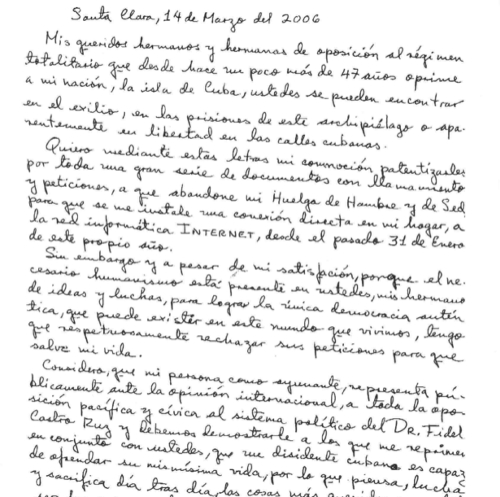 Santa Clara, 14 de Marzo del 2006
Mis queridos hermanos y hermanas de oposición al régimen
totalitario que desde hace un poco más de 47 años oprime
a mi nación, la isla de Cuba, ustedes se pueden encontrar
en el exilio, en las prisiones de este archipiélago o apa-
rentemente en libertad en las calles cubanas.
Quiero mediante estas letras mi conmoción patentizarles
por toda una gran serie de documentos con llamamiento
y peticiones, a que abandone mi Huelga de Hambre y de Sed,
para que se me instale una conexión directa en mi hogar, a
la red informática INTERNET, desde el pasado 31 de Enero
de este propio año.
Sin embargo y a pesar de mi satisfacción, porque el ne-
cesario humanismo está presente en ustedes, mis hermano
de ideas y luchas, para lograr la única democracia autén
tica, que puede existir en este mundo que vivimos, tengo
que respetuosamente rechazar sus peticiones para que
salve mi vida.
Considero, que mi persona como ayunante, representa pú-
blicamente ante la opinión internacional, a toda la opo-
sición pacífica y cívica al sistema político del DR. Fidel
Castro Ruz y debemos demostrarle a los que me reprimen
en conjunto con ustedes, que un disidente cubano es capaz
de ofrendar su mismísima vida, por lo que piensa, lucha
y sacrifica día tras día, las cosas más